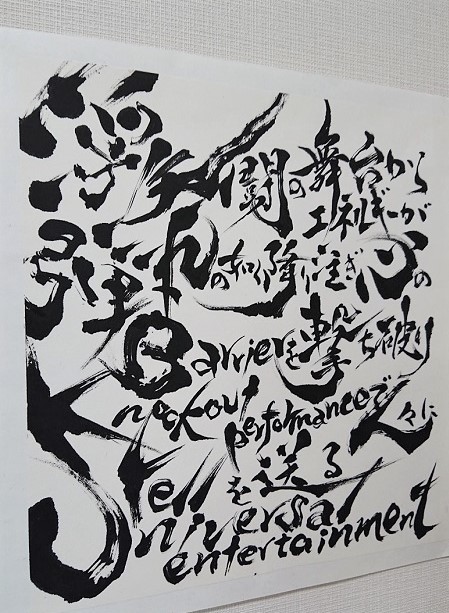 闘の舞台から
エネルギーが
弾丸の如く降り注ぎ心の
Barrierを撃ち破り
Knockout performanceで人々に
Yellを送る
Universal
entertainment